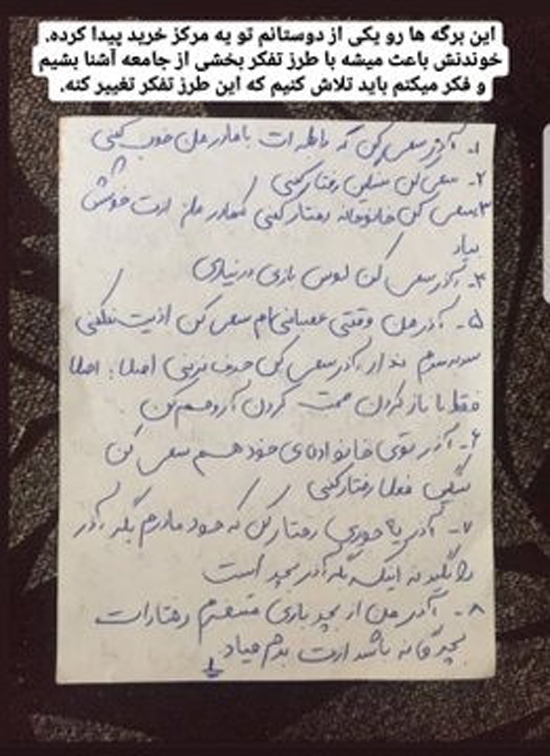 این برگه ها رو یکی از دوستانم تو یه مرکز خرید پیدا کرده.
خوندنش باعث میشه با طرز تفکر بخشی از جامعه آشنا بشیم
و فکر میکنم باید تلاش کنیم که این طرز تفکر تغییر کنه.
۱ـ آذر سعی کن که رابطه ات با مادر من خوب کنی
۲ـ سعی کن سنگین رفتار کنی
۳ـ سعی کن خانومانه رفتار کنی که مادر مادرم ازت خوشش
بیاد
۴ـ آذر سعی کن لوس بازی در نیاری
۵ـ آذر من وقتی عصبانی ام سعی کن اذیت نکنی
سربه سرم نذار آذر سعی کن حرف نزنی اصلا، اصلا
فقط با باز کردن صحبت کردن آرومم کن
۶ـ آذر توی خانواده ی خود هم سعی کن
سنگین رفتار کنی
۷ـ آذر یه جوری رفتار کن که خود مادرم بگه آذر
نه اینکه بگه آذر بچه است
۸ـ آذر من از بچه بازی متنفرم رفتارات
بچه گانه باشد ازت بدم میاد